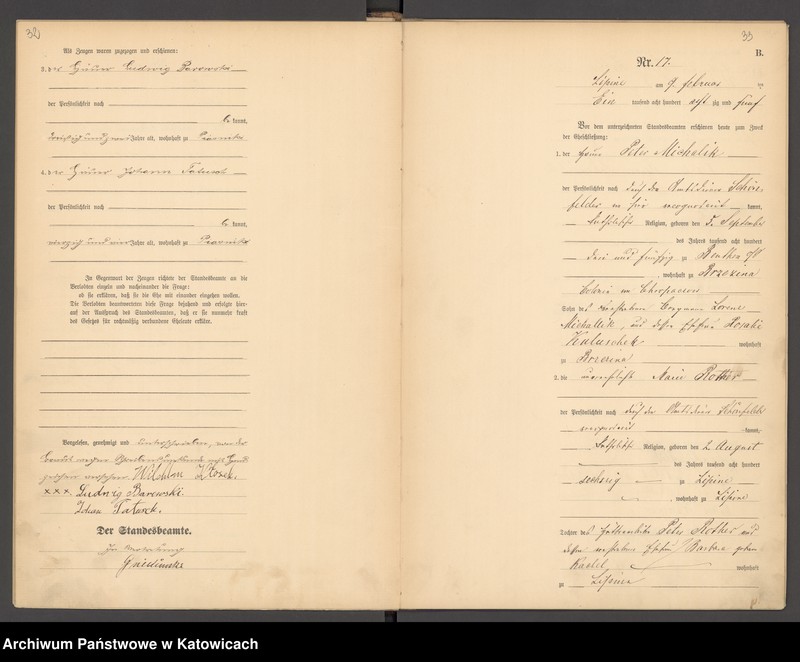 32
Als Zeugen waren zugezogen und erschienen:
3. der Häuer Ludwig Barowski
der Persönlichkeit nach
be kannt,
dreißig und zwei Jahre alt, wohnhaft zu Piasniki
4. der Häuer Johann Tatusch
der Persönlichkeit nach
be kannt,
vierzig und vier Jahre alt, wohnhaft zu Piasniki
In Gegenwart der Zeugen richtete der Standesbeamte an die
Verlobten einzeln und nacheinander die Frage:
ob sie erklären, daß sie die Ehe mit einander eingehen wollen.
Die Verlobten beantworteten diese Frage bejahend und erfolgte hier-
auf der Ausspruch des Standesbeamten, daß er sie nunmehr kraft
des Gesetzes für rechtmäßig verbundene Eheleute erkläre.
Vorgelesen, genehmigt und unterschrieben, von der
xxx Ludwig Barewski.
Der Standesbeamte.
In Vertretung
33
B.
Nr. 17.
Lipine am 9. Februar
Ein tausend acht hundert acht zig und fünf
Vor dem unterzeichneten Standesbeamten erschienen heute zum Zweck
der Eheschließung:
1. der Häuer Peter Michalik
der Persönlichkeit nach durch den Amtsdiener Schön-
felder recognoscirt kannt,
katholischer Religion, geboren den 5. September
des Jahres tausend acht hundert
drei und fünfzig zu Beuthen O/S
, wohnhaft zu Brzezina
Colonie Chropaczow
Sohn des verstorbenen Bergmann Lorenz
Michallik, und dessen Ehefrau Rosalie
wohnhaft
zu Brzezina
2. die unverehelichte Marie Rother
der Persönlichkeit nach durch den Amtsdiener Schönfelder
recognoscirt kannt,
katholischer Religion, geboren den 2. August
des Jahres tausend acht hundert
sechszig zu Lipine
, wohnhaft zu Lipine
Tochter des Peter Rother und
dessen verstorbenen Ehefrau Barbara geborn
wohnhaft
zu Lipine
Archiwum Państwowe w Katowicach